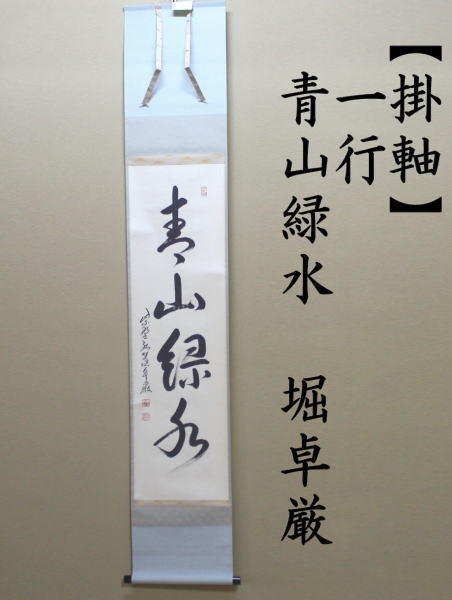 【掛軸】
一行
青山緑水　堀卓厳
青山緑水